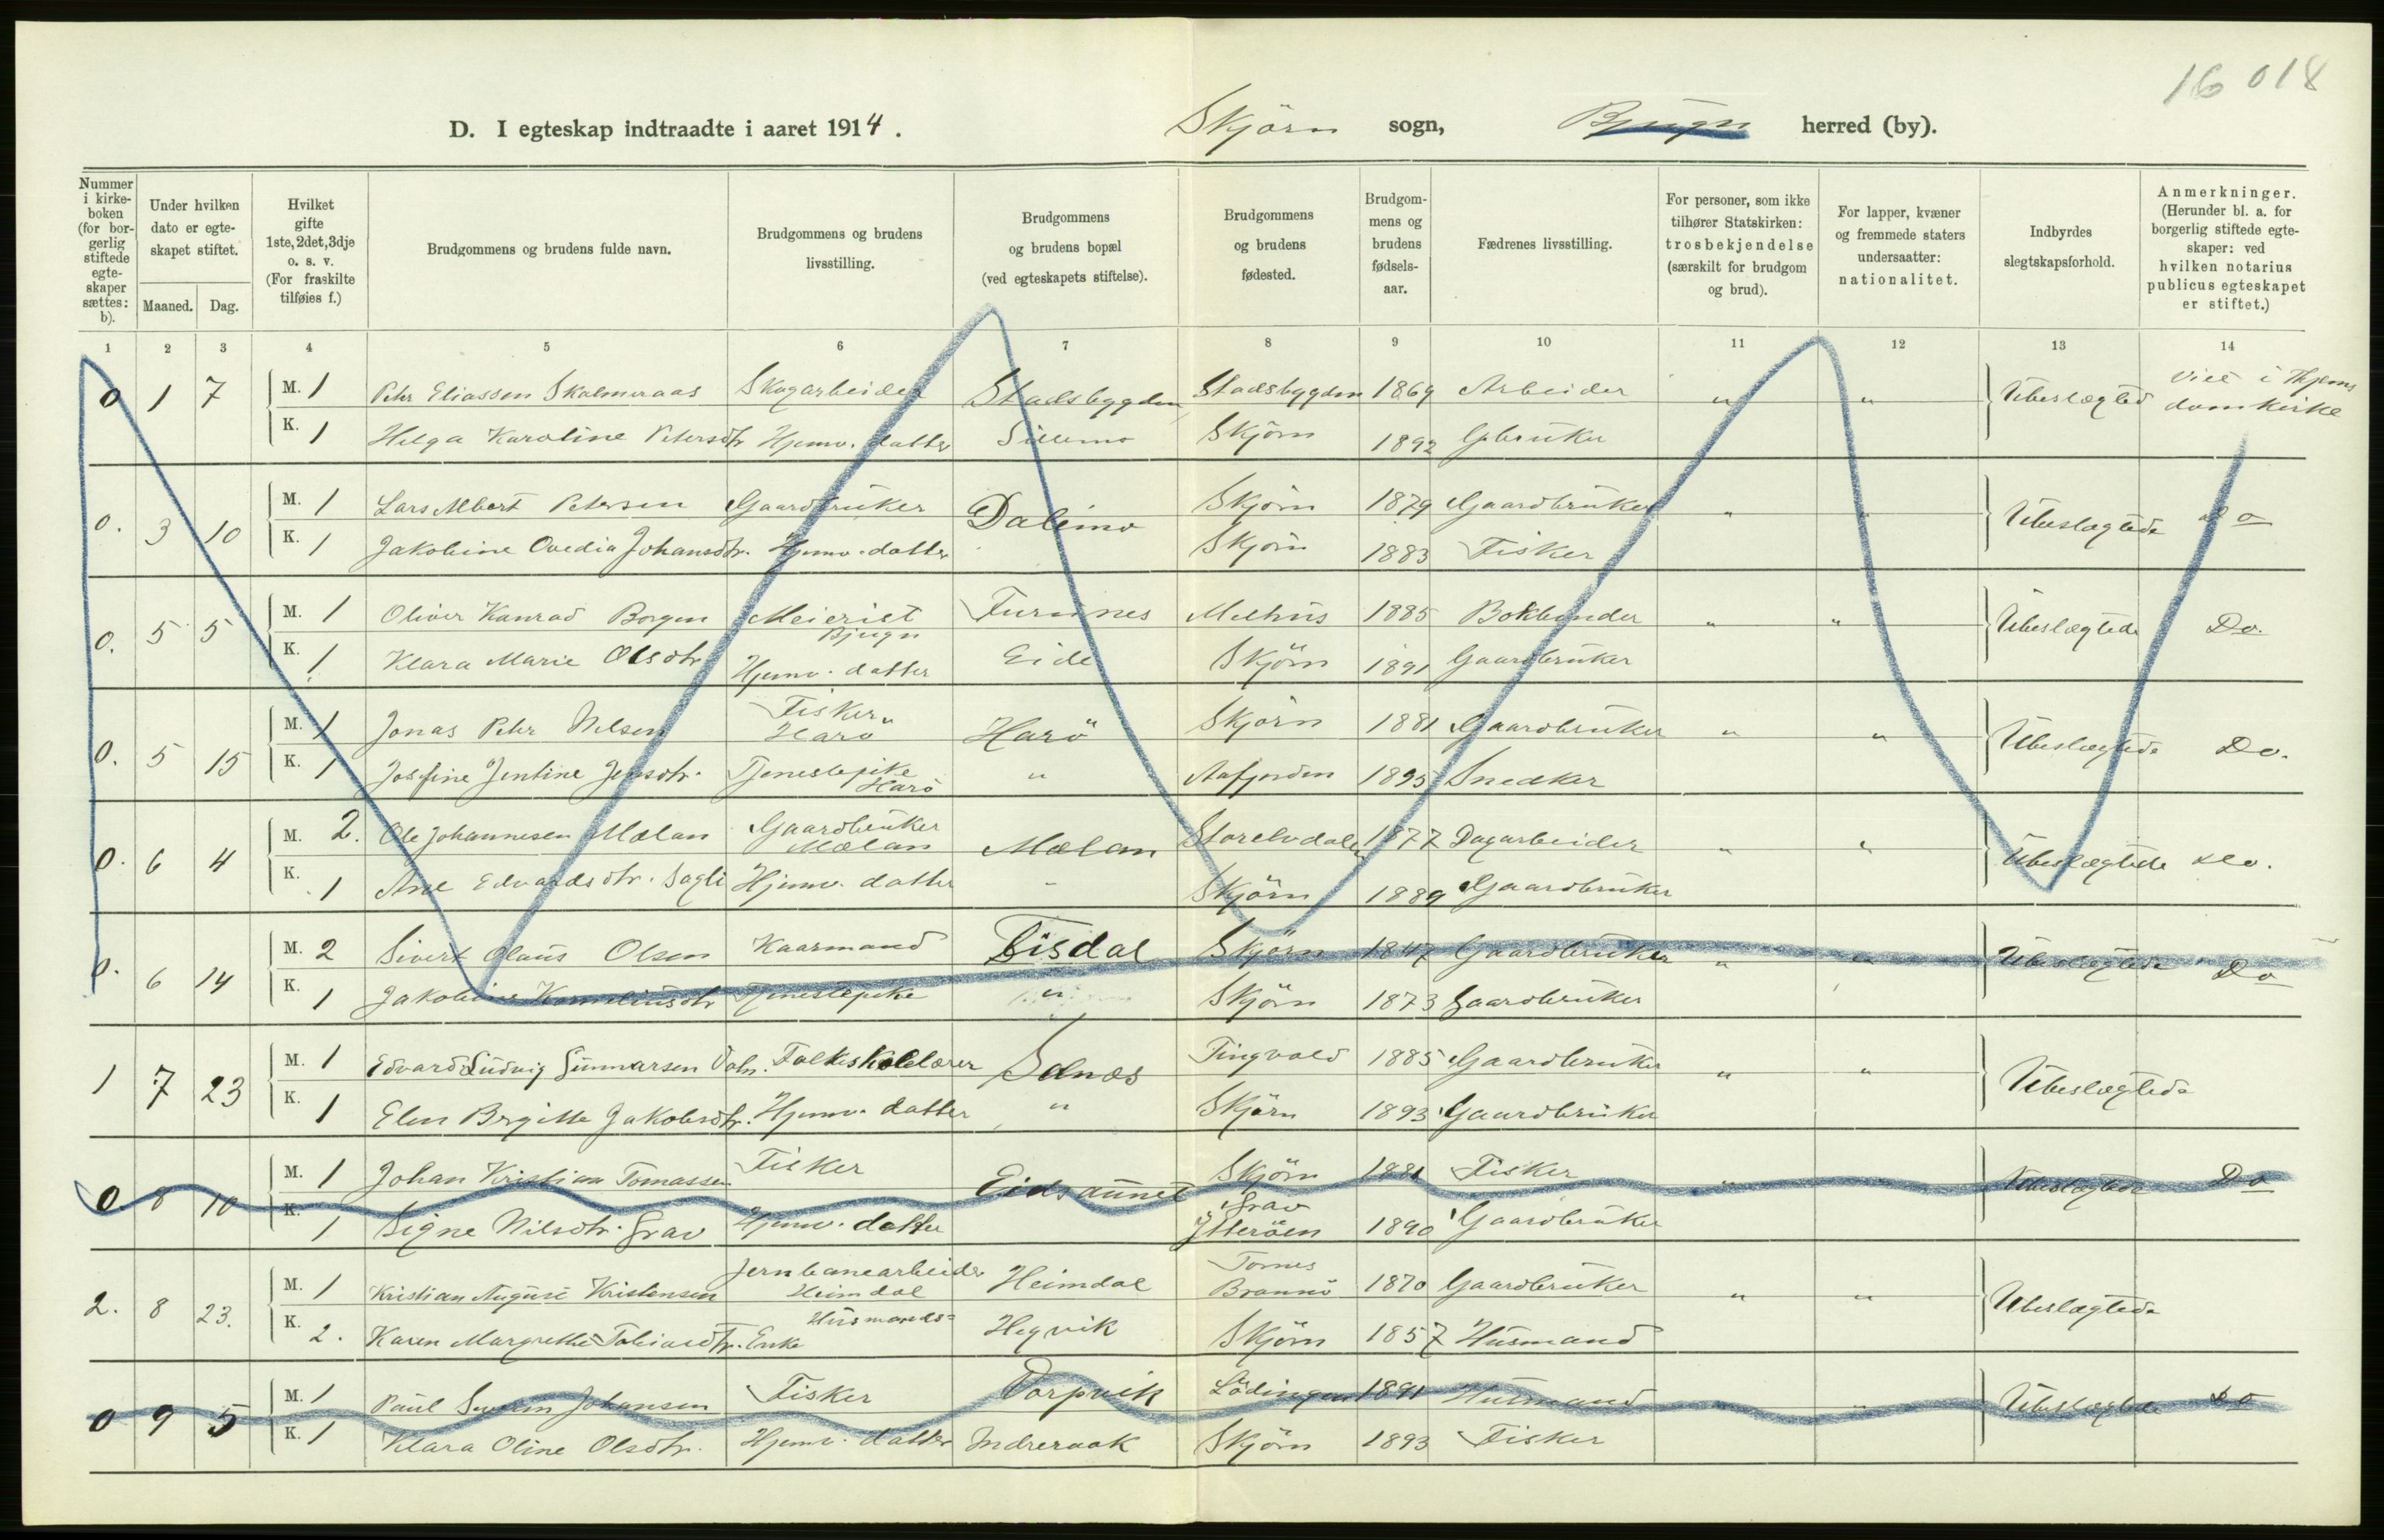 16 018
D. I egteskap indtraadte i aaret 1914. Skjörn sogn, Bjugn herred (by).
Nummer i kirke-boken (for bor-gerlig stiftede egte-skaper sættes: b).
Under hvilken dato er egte-skapet stiftet.
Maaned. Dag.
Hvilket gifte 1ste, 2det, 3dje o. s. v. (For fraskilte tilføies f.)
Brudgommens og brudens fulde navn.
Brudgommens og brudens livsstilling.
Brudgommens og brudens bopæl (ved egteskapets stiftelse).
Brudgommens og brudens fødested.
Brudgom-mens og brudens fødsels-aar.
Fædrenes livsstilling.
For personer, som ikke tilhører Statskirken: trosbekjendelse (særskilt for brudgom og brud).
For lapper, kvæner og fremmede staters undersaatter: nationalitet.
Indbyrdes slegtskapsforhold.
Anmerkninger. (Herunder bl. a. for borgerlig stiftede egte-skaper: ved hvilken notarius publicus egteskapet er stiftet.)
1 2 3 4 5 6 7 8 9 10 11 12 13 14
0 1 7 M. 1 Petr Eliassen Skalmeraas Skogarbeider Stadsbygden Stadsbygden 1869 Arbeider " " Ubeslægted Viet i Thjems domkirke
K. 1 Helga Karoline Petersdtr Hjemv. datter Skjörn 1892 Gbruker
0. 3 10 M. 1 Lars Albert Petersen Gaardbruker Dalimo Skjörn 1879 Gaardbruker " " Ubeslægtede Do
K. 1 Jakobine Ovedia Johansdtr. Hjemv. datter Skjörn 1883 Fisker
0. 5 5 M. 1 Oliver Konrad Borgen Meierist Bjugn Furunes Melhus 1885 Bokbinder " " Ubeslægtede Do.
K. 1 Klara Marie Olsdtr Hjemv. datter Eide Skjörn 1891 Gaardbruker
0. 5 15 M. 1 Jonas Petr Nilsen Fisker Harö Harö Skjörn 1881 Gaardbruker " " Ubeslægtede Do.
K. 1 Josefine Jentine Jensdtr. Tjenestepike Harö " Aafjorden 1895 Snedker
0. 6 4 M. 2. Ole Johannesen Mælan Gaardbruker Mælan Mælan Storelvdalen 1877 Dagarbeider " " Ubeslægtede do.
K. 1 Ane Edvardsdtr. Sagli Hjemv. datter " Skjörn 1889 Gaardbruker
0. 6 14 M. 2 Sivert Olaus Olsen Kaarmand Tisdal Skjörn 1847 Gaardbruker " " Ubeslægtede Do
K. 1 Jakobine Korneliusdtr Tjenestepike " Skjörn 1873 Gaardbruker
1 7 23 M. 1 Edvard Ludvig Gunnarsen Folkeskolelærer Selnæs Tingvold 1885 Gaardbruker " " Ubeslægtede
K. 1 Elen Bergitte Jakobsdtr. Hjemv. datter " Skjörn 1893 Gaardbruker
0. 8 10 M. 1 Johan Kristian Tomassen Fisker Eidsaunet Skjörn 1881 Fisker " " Ubeslægtede Do
K. 1 Signe Nilsdtr. Grav Hjemv. datter Grav Ytteröen 1890 Gaardbruker
2. 8 23. M. 1 Kristian August Kristensen Jernbanearbeider Heimdal Heimdal Tornes Brønnö 1870 Gaardbruker " " Ubeslægtede
K. 2. Karen Margrethe Tobiasdtr. Husmands= Enke Hegvik Skjörn 1857 Husmand
0 9 5 M. 1 Paul Severin Johansen Fisker Torpvik Lödingen 1891 Husmand " " Ubeslægtede Do
K. 1 Klara Oline Olsdtr. Hjemv. datter Indreraak Skjörn 1893 Fisker